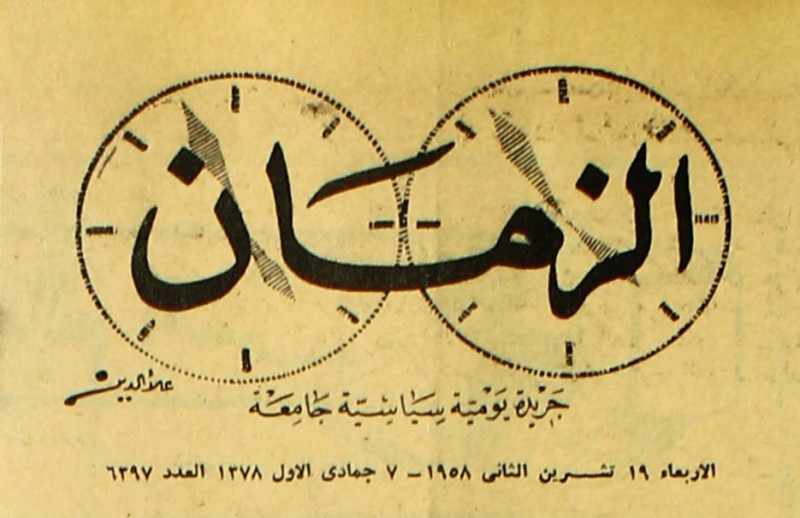 الزمان
علاءالدين
جَرِيْدَة يَوْمِيَّة سِيَاسِيَّة جَامِعَة
الاربعاء ١٩ تشـرين الثانى ١٩٥٨ – ٧ جمادى الاول ١٣٧٨ العدد ٦٣٩٧